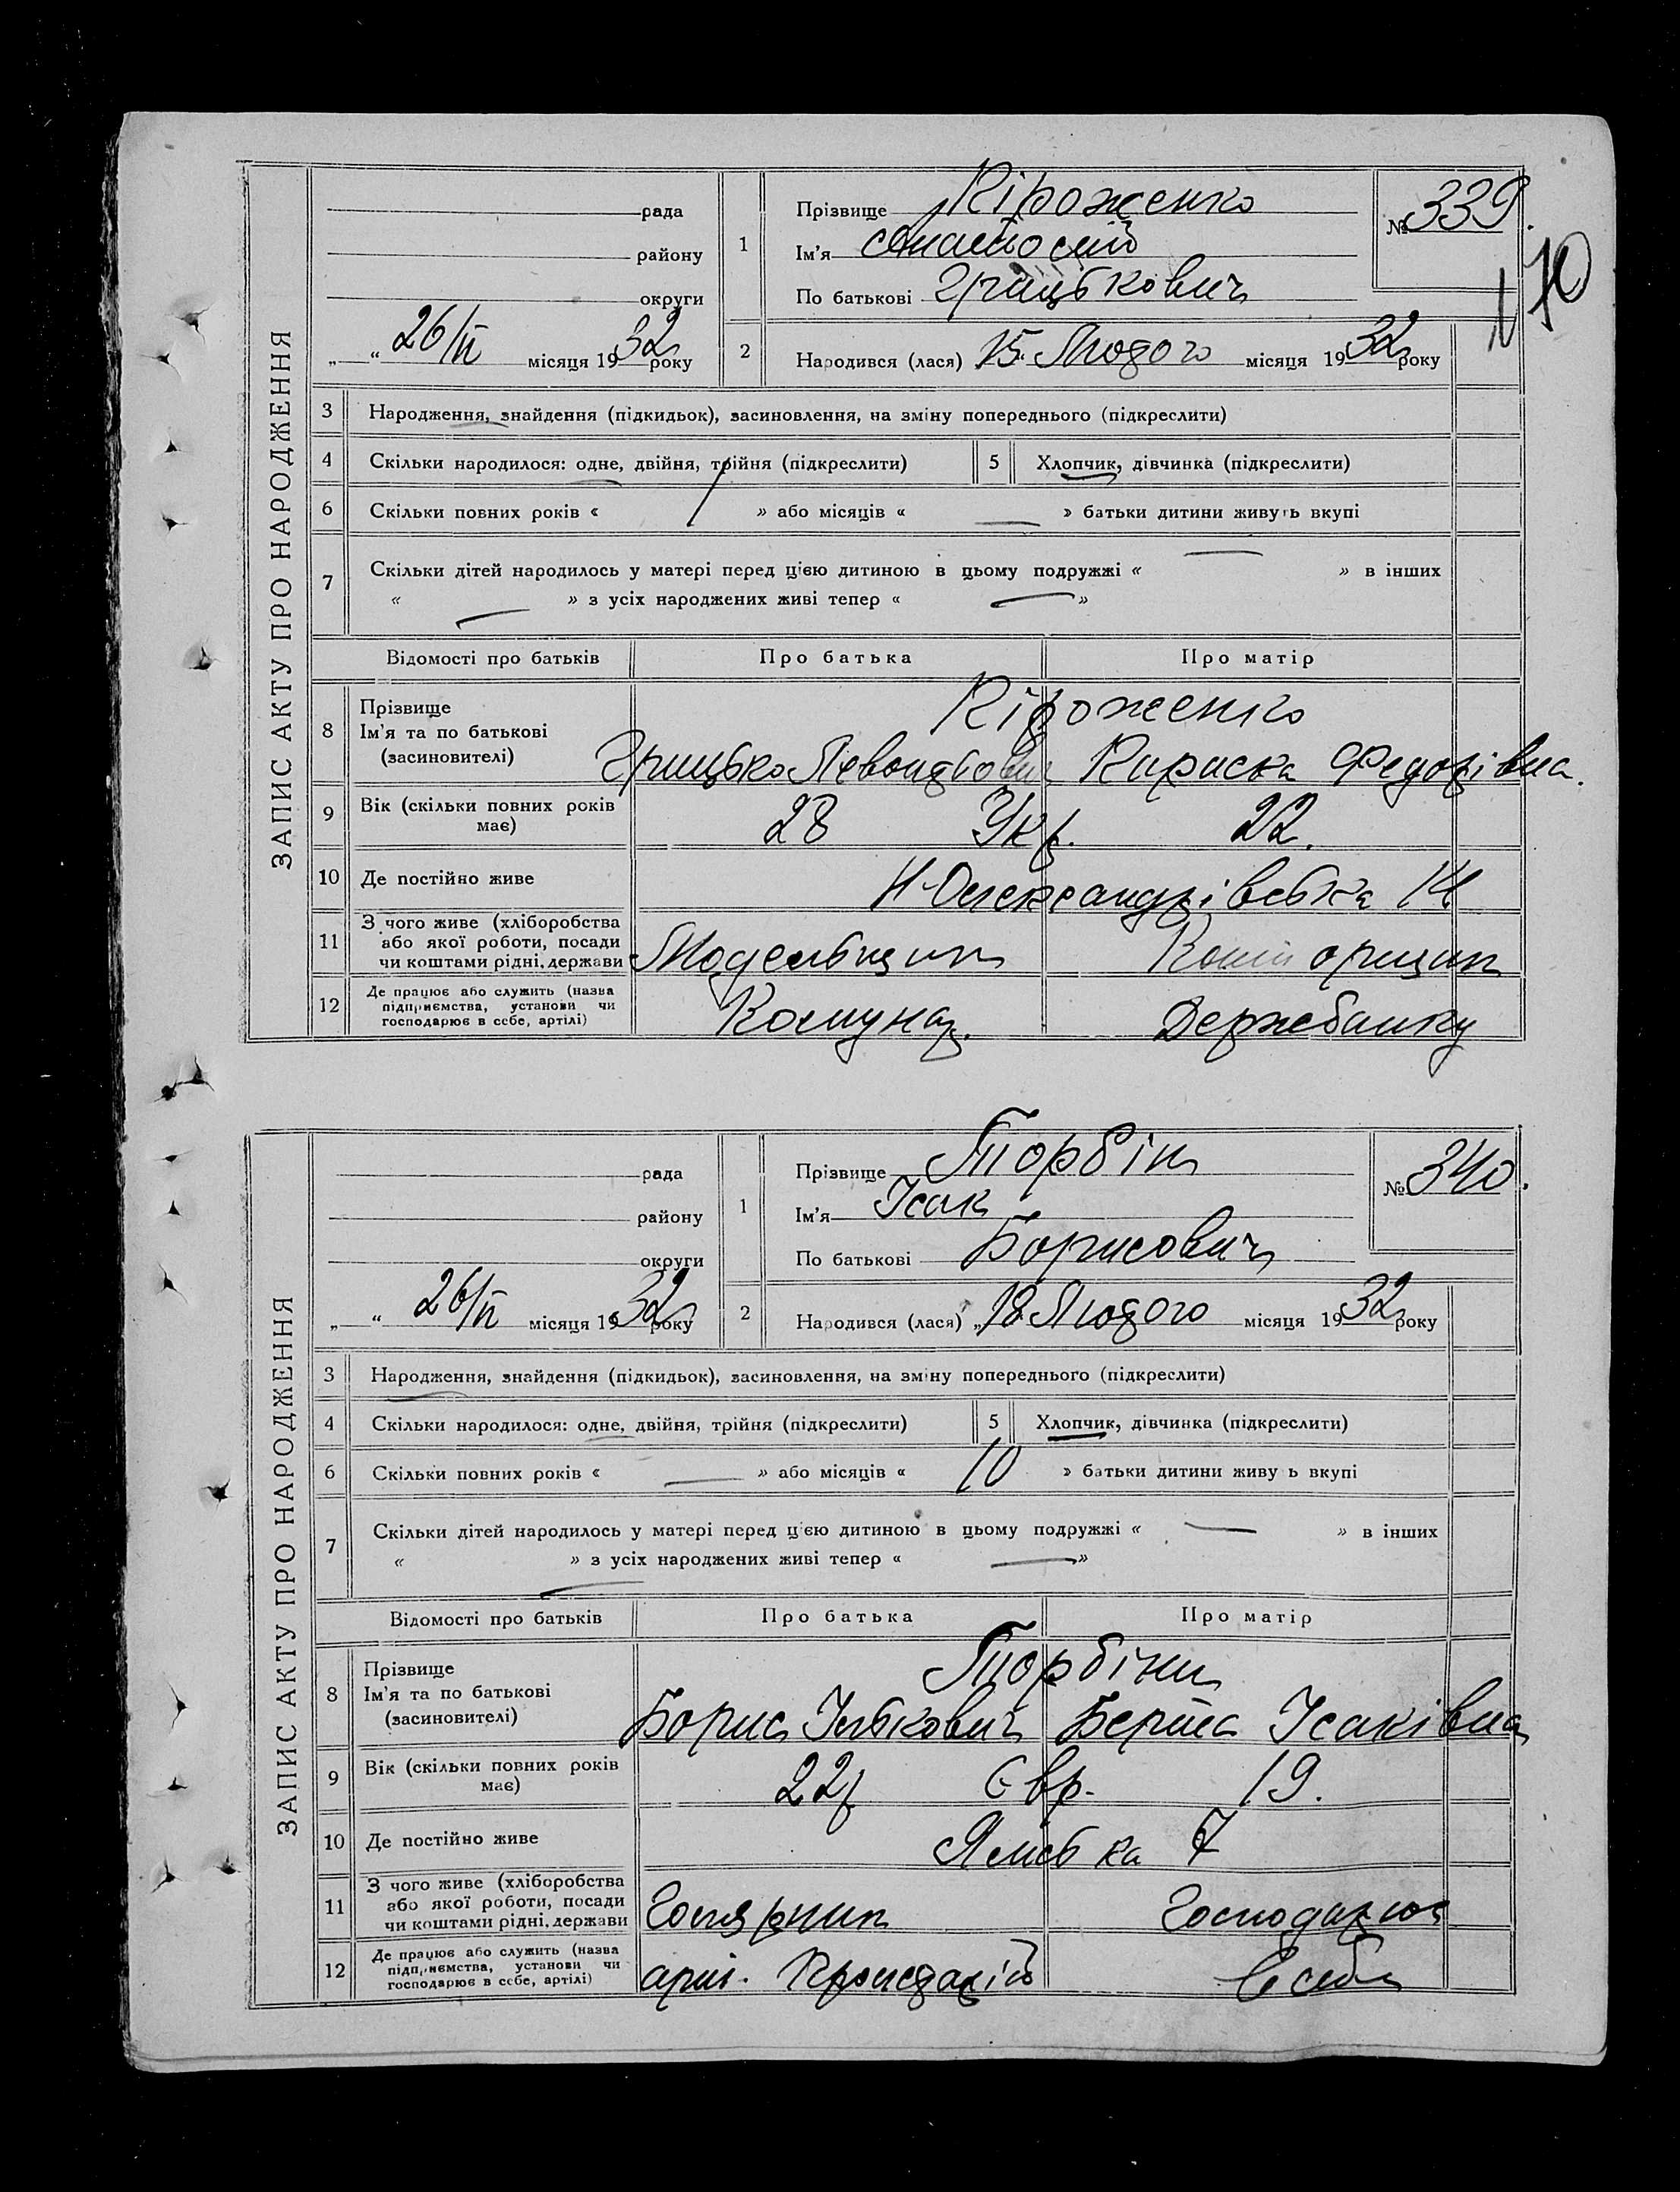 ЗАПИС АКТУ ПРО НАРОДЖЕННЯ
рада
району
округи
„ “ 26/ІІ місяця 1932 року
1
Прізвище Кіроженко
Ім'я Анатолій
По батькові Грицькович
№ 339.
170
2 Народився (лася) 15 Лютого місяця 1932 року
3 Народження, знайдення (підкидьок), засиновлення, на зміну попереднього (підкреслити)
4 Скільки народилося: одне, двійня, трійня (підкреслити) 5 Хлопчик, дівчинка (підкреслити)
6 Скільки повних років « 1 » або місяців « — » батьки дитини живуть вкупі
7 Скільки дітей народилось у матері перед цією дитиною в цьому подружжі « — » в інших
« — » з усіх народжених живі тепер « — »
Відомості про батьків Про батька Про матір
8 Прізвище Кіроженко
Ім'я та по батькові
(засиновителі) Грицько Федорівна.
9 Вік (скільки повних років має) 28 Укр. 22.
10 Де постійно живе Н-Олександрівська 14
11 З чого живе (хліборобства або якої роботи, посади чи коштами рідні, держави Модельщик
12 Де працює або служить (назва підприємства, установи чи господарює в себе, артілі) Комунар. Держбанку
ЗАПИС АКТУ ПРО НАРОДЖЕННЯ
рада
району
округи
„ “ 26/ІІ місяця 1932 року
1
Прізвище Торбін
Ім'я Ісак
По батькові Борисович
№ 340.
2 Народився (лася) „18 Лютого місяця 1932 року
3 Народження, знайдення (підкидьок), засиновлення, на зміну попереднього (підкреслити)
4 Скільки народилося: одне, двійня, трійня (підкреслити) 5 Хлопчик, дівчинка (підкреслити)
6 Скільки повних років « — » або місяців « 10 » батьки дитини живу ь вкупі
7 Скільки дітей народилось у матері перед цією дитиною в цьому подружжі « — » в інших
« — » з усіх народжених живі тепер « — »
Відомості про батьків Про батька Про матір
8 Прізвище Торбіни
Ім'я та по батькові
(засиновителі) Борис Ількович Берта Ісаківна
9 Вік (скільки повних років має) 22 Євр. 19.
10 Де постійно живе Ямська 7
11 З чого живе (хліборобства або якої роботи, посади чи коштами рідні, держави Столярник Господарює
12 Де працює або служить (назва підприємства, установи чи господарює в себе, артілі) арт. Пролетарій в себе